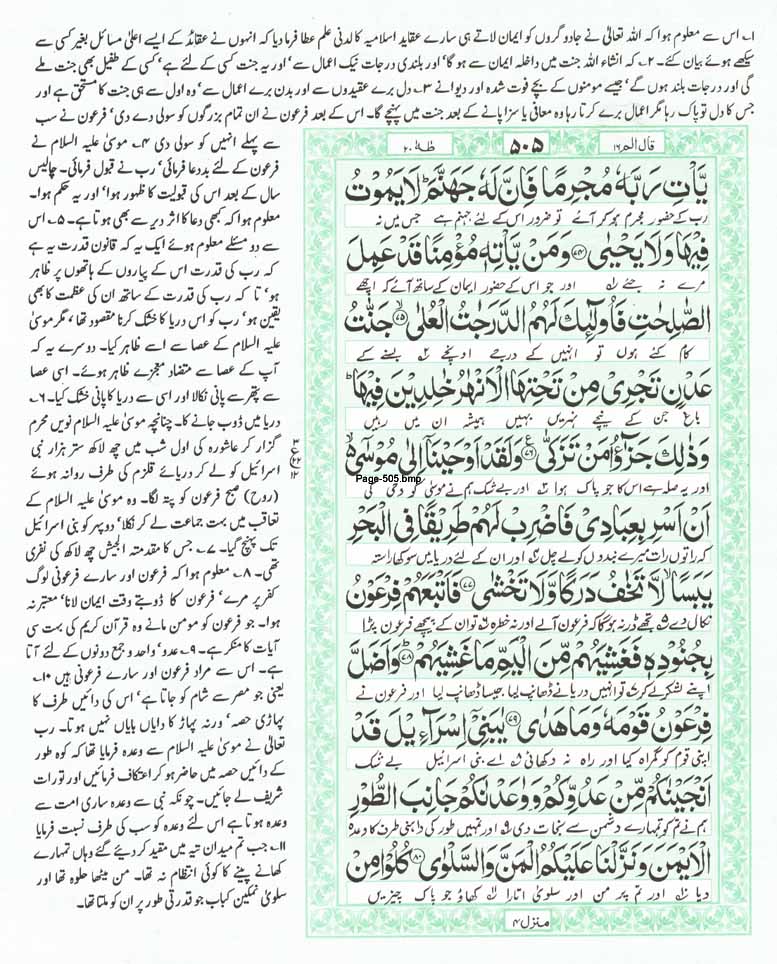 ۱۔ اس سے معلوم ہوا کہ اللہ تعالیٰ نے جادوگروں کو ایمان لاتے ہی سارے عقاید اسلامیہ کا لدنی علم عطا فرما دیا کہ انہوں نے عقائد کے ایسے اعلیٰ مسائل بغیر کسی سے
سیکھے ہوئے بیان کئے۔ ۲۔ کہ انشاء اللہ جنت میں داخلہ ایمان سے ہو گا‘ اور بلندی درجات نیک اعمال سے‘ اور یہ جنت کسی کے لئے ہے‘ کسی کے طفیل بھی جنت ملے
گی اور درجات بلند ہوں گے‘ جیسے مومنوں کے بچے فوت شدہ اور دیوانے ۳۔ دل برے عقیدوں سے اور بدن برے اعمال سے‘ وہ اول سے ہی جنت کا مستحق ہے اور
جس کا دل تو پاک رہا مگر اعمال برے کرتا رہا وہ معافی یا سزا پانے کے بعد جنت میں پہنچے گا۔ اس کے بعد فرعون نے ان تمام بزرگوں کو سولی دے دی‘ فرعون نے سب
سے پہلے انہیں کو سولی دی ۴۔ موسیٰ علیہ السلام نے
فرعون کے لئے بددعا فرمائی‘ رب نے قبول فرمائی۔ چالیس
سال کے بعد اس کی قبولیت کا ظہور ہوا‘ اور یہ حکم ہوا۔
معلوم ہوا کہ کبھی دعا کا اثر دیر سے بھی ہوتا ہے۔ ۵۔ اس
سے دو مسئلے معلوم ہوئے ایک یہ کہ قانون قدرت یہ ہے
کہ رب کی قدرت اس کے پیاروں کے ہاتھوں پر ظاہر
ہو‘ تا کہ رب کی قدرت کے ساتھ ان کی عظمت کا بھی
یقین ہو‘ رب کو اس دریا کا خشک کرنا مقصود تھا‘ مگر موسیٰ
علیہ السلام کے عصا سے اسے ظاہر کیا۔ دوسرے یہ کہ
آپ کے عصا سے متضاد معجزے ظاہر ہوئے۔ اسی عصا
سے پتھر سے پانی نکالا اور اسی سے دریا کا پانی خشک کیا۔ ۶۔
دریا میں ڈوب جانے کا۔ چنانچہ موسیٰ علیہ السلام نویں محرم
گزار کر عاشورہ کی اول شب میں چھ لاکھ ستر ہزار بنی
اسرائیل کو لے کر دریائے قلزم کی طرف روانہ ہوئے
(روح) صبح فرعون کو پتہ لگا۔ وہ موسیٰ علیہ السلام کے
تعاقب میں بہت جماعت لے کر نکلا‘ دوپہر کو بنی اسرائیل
تک پہنچ گیا۔ ۷۔ جس کا مقدمتہ الجیش چھ لاکھ کی نفری
تھی۔ ۸۔ معلوم ہوا کہ فرعون اور سارے فرعونی لوگ
کفر پر مرے‘ فرعون کا ڈوبتے وقت ایمان لانا‘ معتبر نہ
ہوا۔ جو فرعون کو مومن مانے وہ قرآن کریم کی بہت سی
آیات کا منکر ہے۔ ۹۔ عدو‘ واحد و جمع دونوں کے لئے آتا
ہے۔ اس سے مراد فرعون اور سارے فرعونی ہیں ۱۰۔
یعنی جو مصر سے شام کو جاتا ہے‘ اس کی دائیں طرف کا
پہاڑی حصہ‘ ورنہ پہاڑ کا دایاں بایاں نہیں ہوتا۔ رب
تعالیٰ نے موسیٰ علیہ السلام سے وعدہ فرمایا تھا کہ کوہ طور
کے دائیں حصہ میں حاضر ہو کر اعتکاف فرمائیں اور تورات
شریف لے جائیں۔ چونکہ نبی سے وعدہ ساری امت سے
وعدہ ہوتا ہے اس لئے وعدہ کو سب کی طرف نسبت فرمایا
۱۱۔ جب تم میدان تیہ میں مقید کر دیئے گئے وہاں تمہارے
کھانے پینے کا کوئی انتظام نہ تھا۔ من میٹھا حلوہ تھا اور
سلویٰ نمکین کباب جو قدرتی طور پر ان کو ملتا تھا۔
قال الم ۱۶ ۵۰۵ طٰهٰ ۲۰
يَّاْتِ رَبَّهٗ مُجْرِمًا فَاِنَّ لَهٗ جَهَنَّمَ ؕ لَا يَمُوْتُ
رب کے حضور مجرم ہو کر آئے تو ضرور اس کے لئے جہنم ہے جس میں نہ
فِيْهَا وَلَا يَحْيٰى ﴿۷۴﴾ وَمَنْ يَّاْتِهٖ مُؤْمِنًا قَدْ عَمِلَ
مرے نہ جئے اور جو اس کے حضور ایمان کے ساتھ آئے کہ اچھے
الصّٰلِحٰتِ فَاُولٰٓئِكَ لَهُمُ الدَّرَجٰتُ الْعُلٰى ﴿۷۵﴾ جَنّٰتُ
کام کئے ہوں تو انہیں کے درجے اونچے بسنے کے
عَدْنٍ تَجْرِيْ مِنْ تَحْتِهَا الْاَنْهٰرُ خٰلِدِيْنَ فِيْهَا ؕ
باغ جن کے نیچے نہریں بہیں ہمیشہ ان میں رہیں
وَذٰلِكَ جَزٰٓؤُا مَنْ تَزَكّٰى ﴿۷۶﴾ وَلَقَدْ اَوْحَيْنَاۤ اِلٰى مُوْسٰۤى
اور یہ صلہ ہے اس کا جو پاک ہوا اور بے شک ہم نے موسیٰ کو وحی کی
Page-505.bmp
اَنْ اَسْرِ بِعِبَادِيْ فَاضْرِبْ لَهُمْ طَرِيْقًا فِي الْبَحْرِ
کہ راتوں رات میرے بندوں کو لے چل اور ان کے لئے دریا میں سوکھا راستہ
يَبَسًا ۙ لَّا تَخٰفُ دَرَكًا وَّلَا تَخْشٰى ﴿۷۷﴾ فَاَتْبَعَهُمْ فِرْعَوْنُ
نکال دے تجھے ڈر نہ ہوگا کہ فرعون آلے اور نہ خطرہ تو ان کے پیچھے فرعون پڑا
بِجُنُوْدِهٖ فَغَشِيَهُمْ مِّنَ الْيَمِّ مَا غَشِيَهُمْ ﴿۷۸﴾ وَاَضَلَّ
اپنے لشکر لے کر تو انہیں دریا نے ڈھانپ لیا جیسا ڈھانپ لیا اور فرعون نے
فِرْعَوْنُ قَوْمَهٗ وَمَا هَدٰى ﴿۷۹﴾ يٰبَنِيْۤ اِسْرَآءِيْلَ قَدْ
اپنی قوم کو گمراہ کیا اور راہ نہ دکھائی اے بنی اسرائیل بے شک
اَنْجَيْنٰكُمْ مِّنْ عَدُوِّكُمْ وَوٰعَدْنٰكُمْ جَانِبَ الطُّوْرِ
ہم نے تم کو تمہارے دشمن سے نجات دی اور تمہیں طور کی داہنی طرف کا وعدہ
الْاَيْمَنَ وَنَزَّلْنَا عَلَيْكُمُ الْمَنَّ وَالسَّلْوٰى ﴿۸۰﴾ كُلُوْا مِنْ
دیا اور تم پر من اور سلویٰ اتارا کھاؤ جو پاک چیزیں
منزل ۴